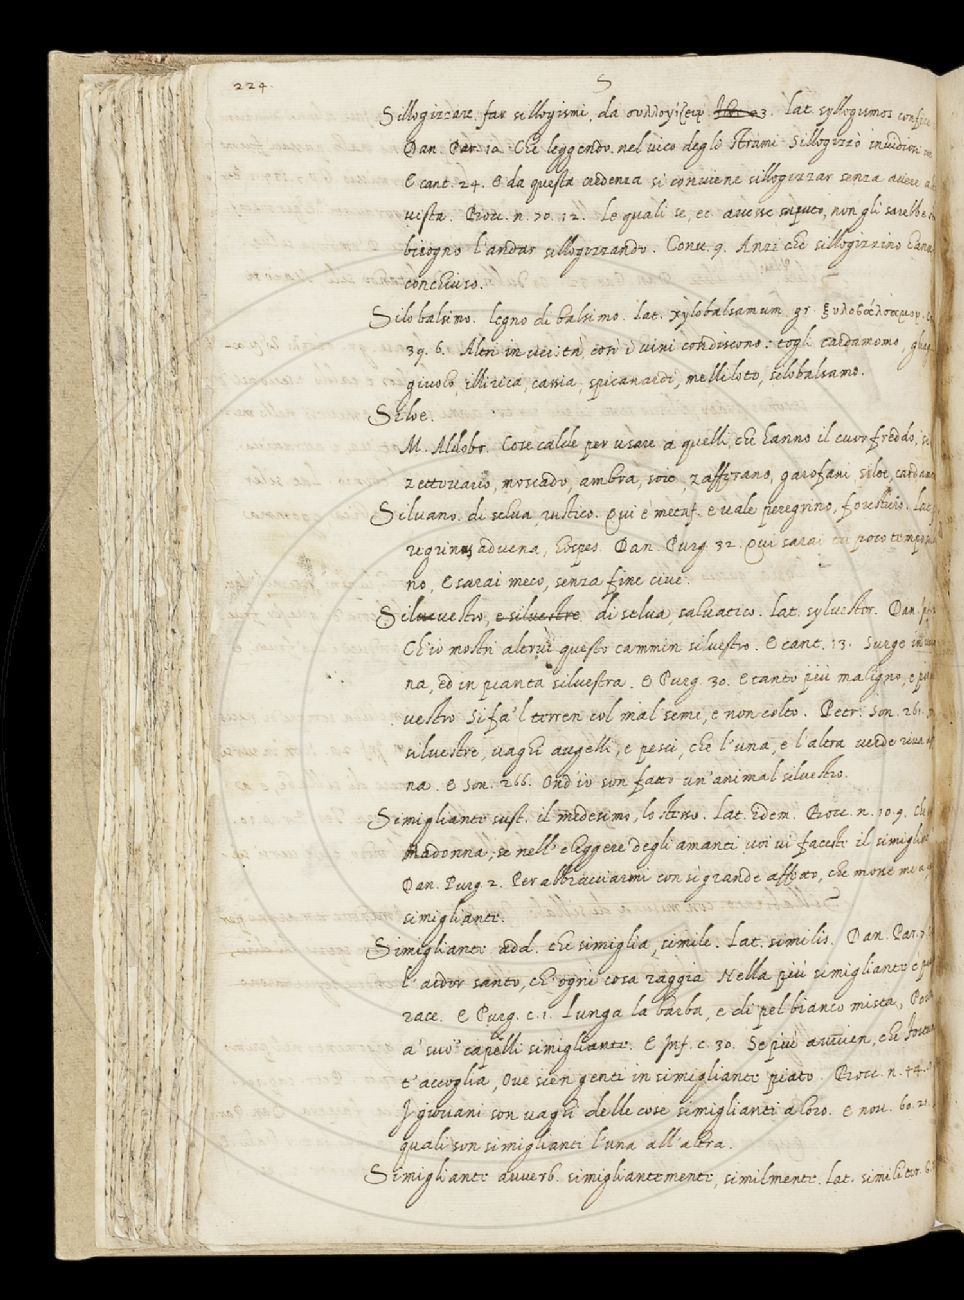 224.
S
Sillogizzare. far sillogismi, da συλλογίζειν. Lat. syllogismos
Dan. Par. 10. Che leggendo nel vico degli strami Sillogizzò invidiosi
E cant. 24. E da questa credenza si conviene sillogizzar senza avere
vista. Bocc. n. 70. 12. Le quali se, ec. avesse saputo, non gli sarebbe
bisogno l'andar sillogizzando. Conv. 9. Anzi che sillogizzino hanno
conchiuso.
Silobalsimo. legno di balsimo. Lat. xylobalsamum. gr. ξυλοβάλσαμον.
39. 6. Altri in verità, così i vini condiscono: togli cardamomo,
givolo, illirica, cassia, spicanardi, melliloto, silobalsamo.
Siloe.
M. Aldobr. Cose calde per usare a quelli che hanno il cuor freddo,
zettovario, moscado, ambra, zafferano, garofani, siloe,
Silvano. di selva, rustico. Qui è metaf. e vale peregrino, forestiero. Lat.
regrinus advena, hospes. Dan. Purg. 32. Qui sarai tu poco tempo
no, E sarai meco, senza fine cive.
Silvestro, e silvestre. di selva, salvatico. Lat. sylvester. Dan.
Ch'io mostri altrui questo cammin silvestro. E cant. 13. Surge in
na, ed in pianta silvestra. E Purg. 30. E tanto più maligno, e più
vestro Si fa 'l terren col mal seme, e non colto. Petr. Son. 261.
silvestre, vaghi augelli, e pesci, che l'una, e l'altra verde riva
na. E Son. 266. Ond'io son fatto un'animal silvestro.
Simigliante sust. il medesimo, lo stesso. Lat. idem. Bocc. n. 10. 9.
Madonna, se nell'eleggere degli amanti voi vi faceste il
Dan. Purg. 2. Per abbracciarmi con sì grande affetto, che mosse me a
simigliante.
Simigliante add. che simiglia, simile. Lat. similis. Dan. Par. 7.
l'ardor santo, ch'ogni cosa raggia Nella più simigliante è più
vace. E Purg. c. 1. Lunga la barba, e di pel bianco mista,
a' suo' capelli simigliante. E Inf. c. 30. Se più avvien, che
t'accoglia, Ove sien genti in simigliante piato. Bocc. n. 44.
I giovani son vaghi delle cose simiglianti a loro. E nov. 60.
quali son simiglianti l'una all'altra.
Simigliante avverb. simigliantemente, similmente. Lat. similiter.